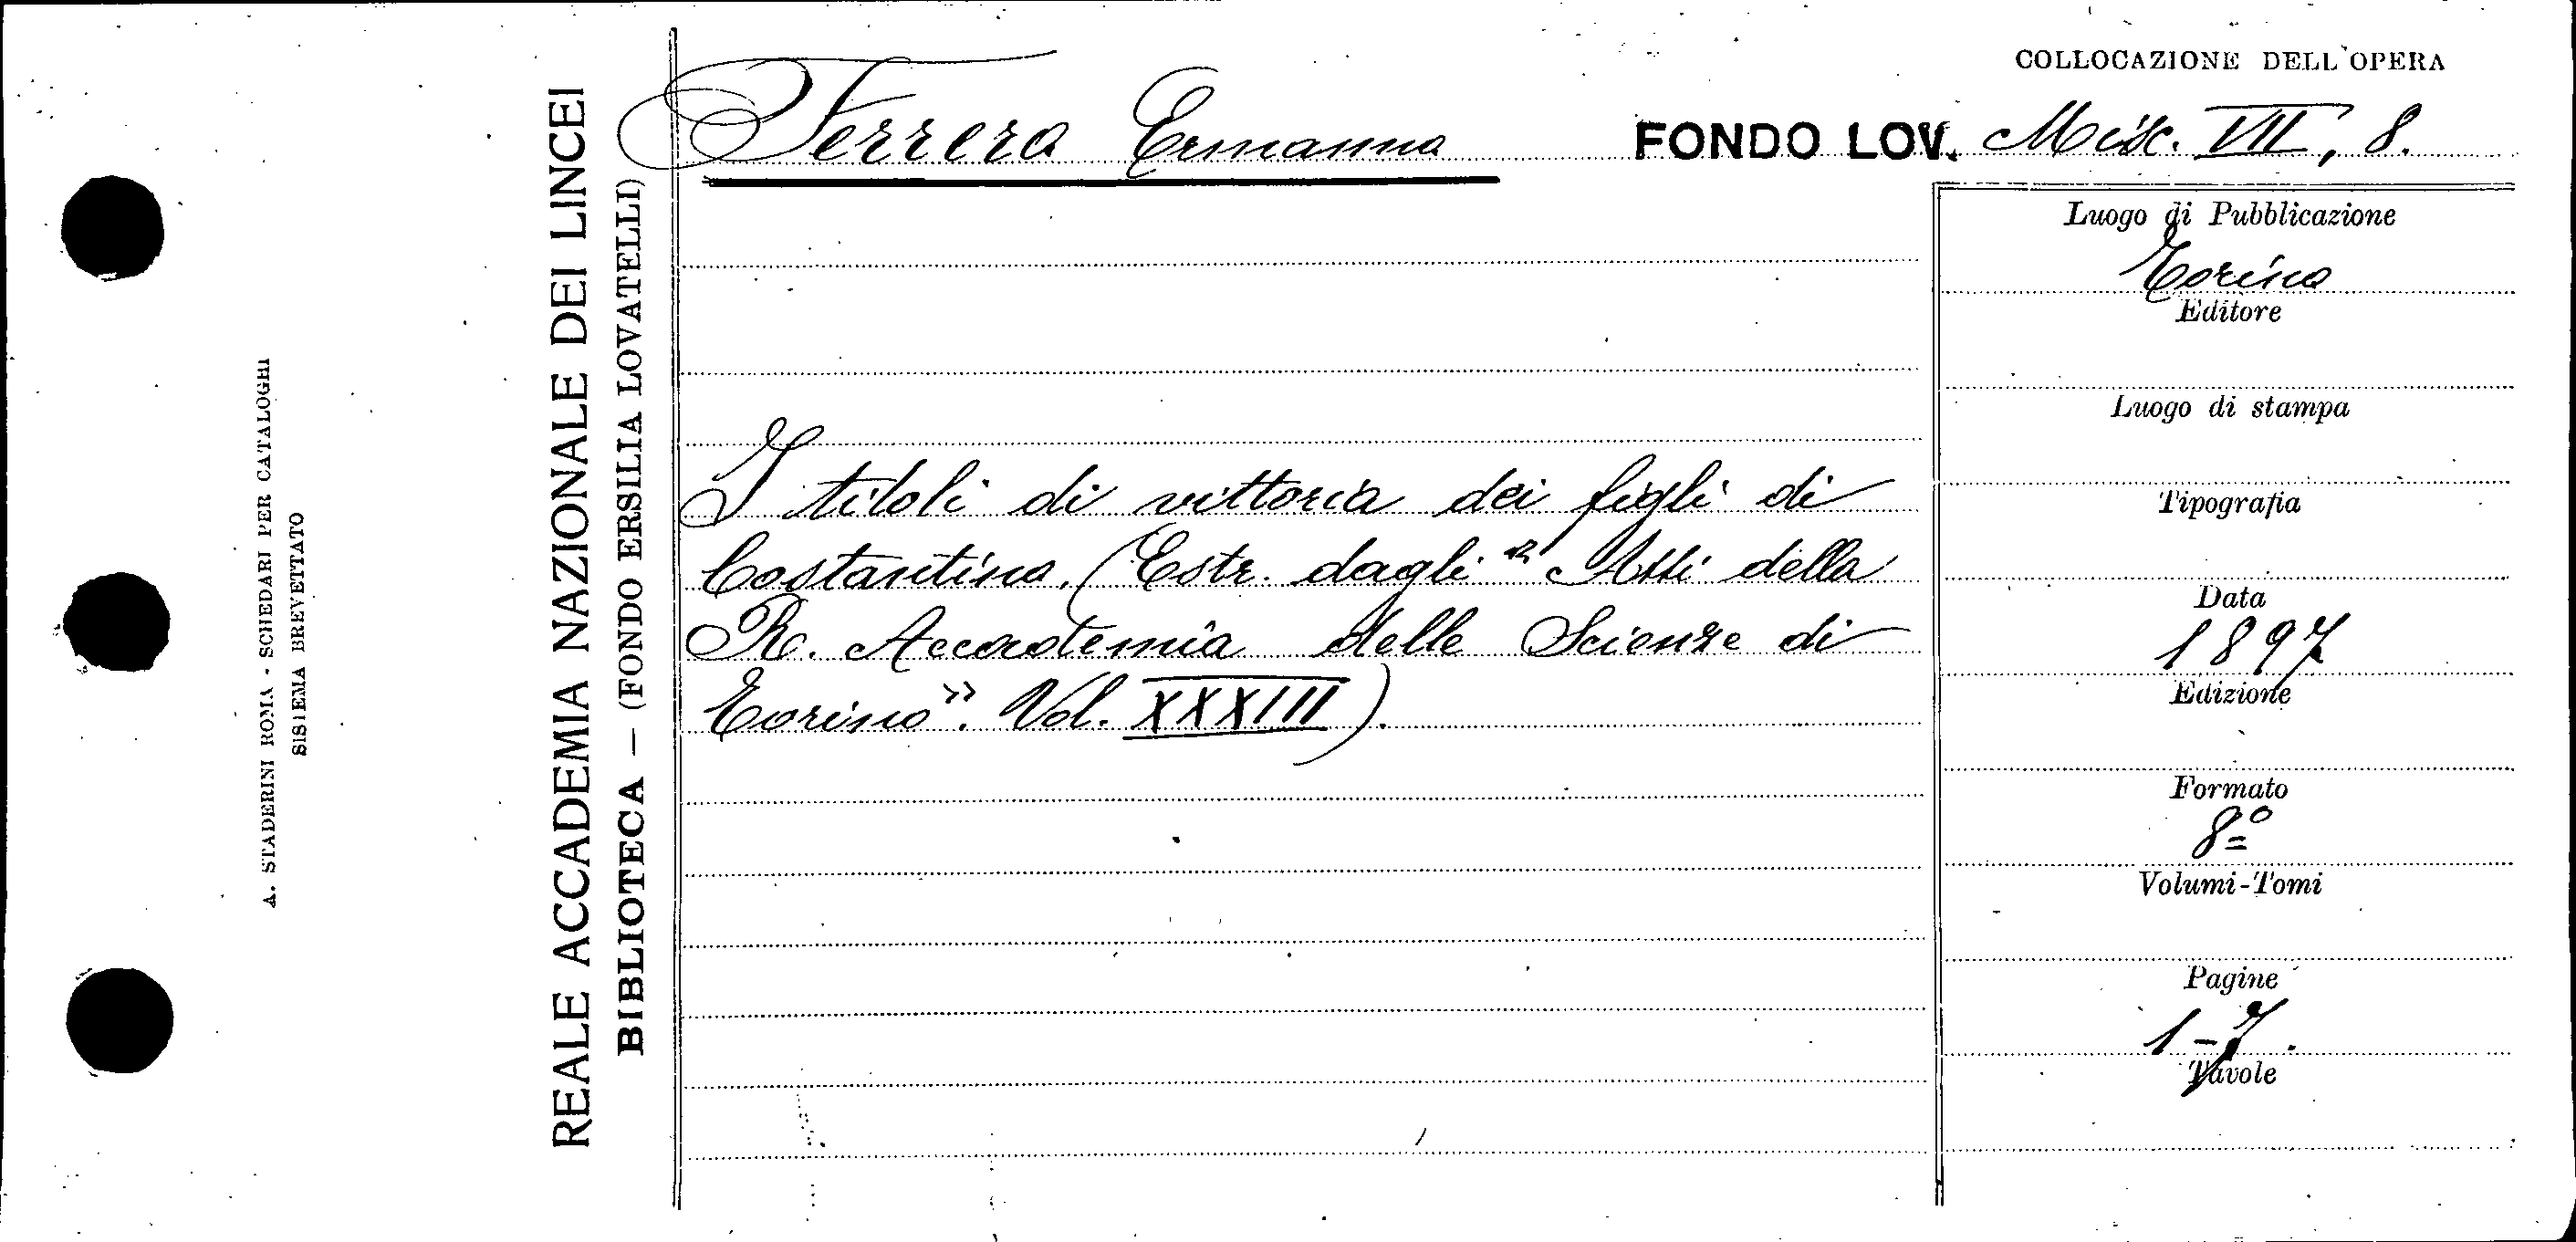 COLLOCAZIONE DELL'OPERA
Ferrero Ermanno FONDO LOV. Misc. VII, 8.
I titoli di vittoria dei figli di
Costantino. (Estr. dagli "Atti della
R. Accademia delle Scienze di
Torino". Vol. XXXIII).
Luogo di Pubblicazione
Torino
Editore
Luogo di stampa
Tipografia
Data
1897
Edizione
Formato
8º
Volumi-Tomi
Pagine
1-7.
Tavole
REALE ACCADEMIA NAZIONALE DEI LINCEI
BIBLIOTECA — (FONDO ERSILIA LOVATELLI)
A. STADERINI ROMA - SCHEDARI PER CATALOGHI
SISTEMA BREVETTATO